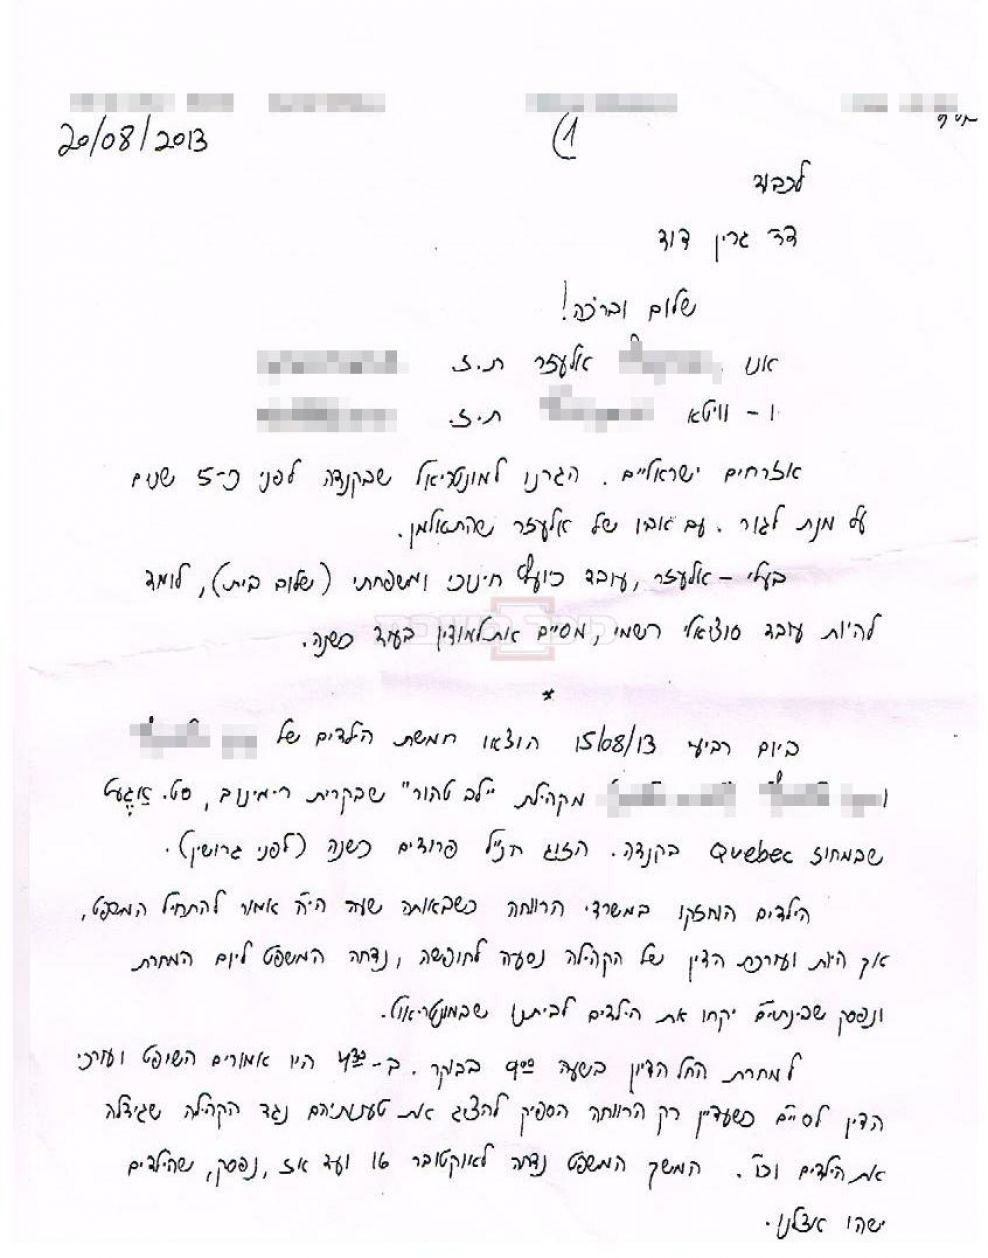 20/08/2013
(1
לכבוד
דר' גרין דוד
שלום וברכה!
אני אלעזר ת.ז.
ו - וויטא ת.ז.
אזרחים ישראליים. היגרנו למונטריאול שבקנדה לפני כ-5 שנים
על מנת לגור. עם אביו של אלעזר שהתאלמן.
בעלי - אלעזר, עובד כיועץ חינוכי ומשפחתי (שלום בית), לומד
להיות עובד סוציאלי רשמי, מסיים את למודיו בעוד כשנה.
*
ביום רביעי 15/08/13 הוצאו חמשת הילדים של
ו מקהילת "לב טהור" שבקרית רימינוב, סט. אַגָעט
שבמחוז Quebec בקנדה. הזוג הנ"ל פרודים כשנה (לפני גרושין).
הילדים הוחזקו במשרדי הרווחה כשבאותה שעה היה אמור להתחיל המשפט,
אך היות ועורכת הדין של הקהילה נסעה לחופשה, נדחה המשפט ליום המחרת
ונפסק שבינתיים יקחו את הילדים לביתנו שבמונטריאול.
למחרת החל הדיון בשעה 9:00 בבוקר. ב-4:30 היו אמורים השופט ועורכי
הדין לסיים כשעדיין רק הרווחה הספיק להציג את טענותיהם נגד הקהילה שגידלה
את הילדים וכו'. המשך המשפט נדחה לאוקטובר 16 ועד אז, נפסק, שהילדים
ישהו אצלנו.
כיכר השבת